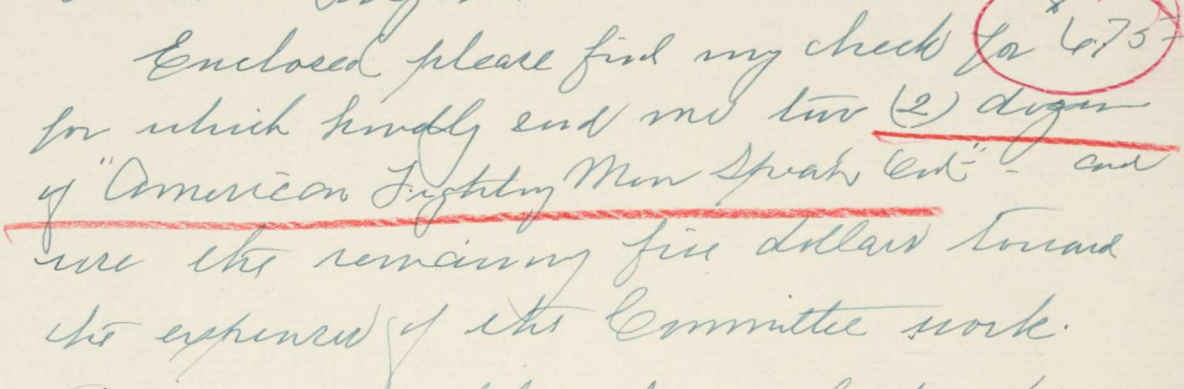 Enclosed please find my check for $6.75
for which kindly send me two (2) dozen
of "American Fighting Men Speak Out" - and
use the remaining five dollars toward
the expenses of the Committee work.